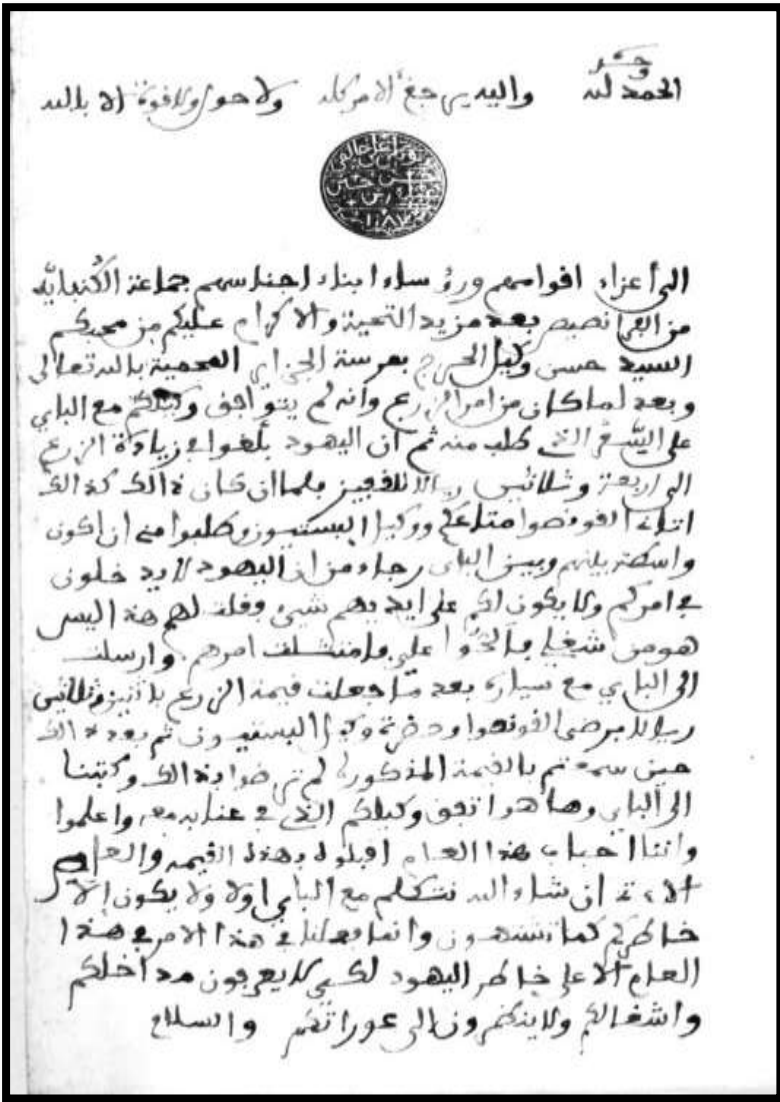 وحده
الحمد لله واليه يرجع الأمر كله ولا حول ولا قوة إلا بالله
حسن
الى أعزاء اقوامهم ورؤساء ابناء اجناسهم جماعة الكنبانيه
من الفرانصيص بعد مزيد التحية والاكرام عليكم من محبكم
السيد حسن وكيل الحرج بمرسة الجزاير المحمية بالله تعالى
وبعد لما كان من امر الزرع وانه لم يتوافق وكيلكم مع الباي
على السفر الذي طلب منه ثم ان اليهود بلغوا في زيادة الزرع
الى اربعة وثلاثين ريالا للقفيز فلما ان كان ذالك كذالك
اتانا القونصوا متاعكم ووكيل البستيون وطلبوا مني ان اكون
واسطة بينهم وبين الباي رجاء من ان اليهود لا يدخلون
في امركم ولا يكون لكم على ايديهم شيئ وقلت لهم هذا ليس
هو من شغلي فألحوا علي فامتثلت امرهم وارسلت
الى الباي مع سياره بعد ما جعلت قيمة الزرع باثنين وثلاثين
ريالا برضى القونصوا وحضرة وكيل البستيون ثم بعد ذالك
حين سمعتم بالقيمة المذكورة لم ترضوا بذالك وكتبنا
الى الباي وها هو اتفق وكيلكم الذي في عنابه معه واعلموا
واننا احباب هذا العام اقبلوه بهذه القيمه والعام
الاتي ان شاء الله نتكلم مع الباي اولا ولا يكون إلا
خاطركم كما تشتهون وانما فعلنا في هذا الامر في هذا
العام الا على خاطر اليهود لكي لا يعرفون مداخلكم
واشغالكم ولا ينظرون الى عوراتكم والسلام